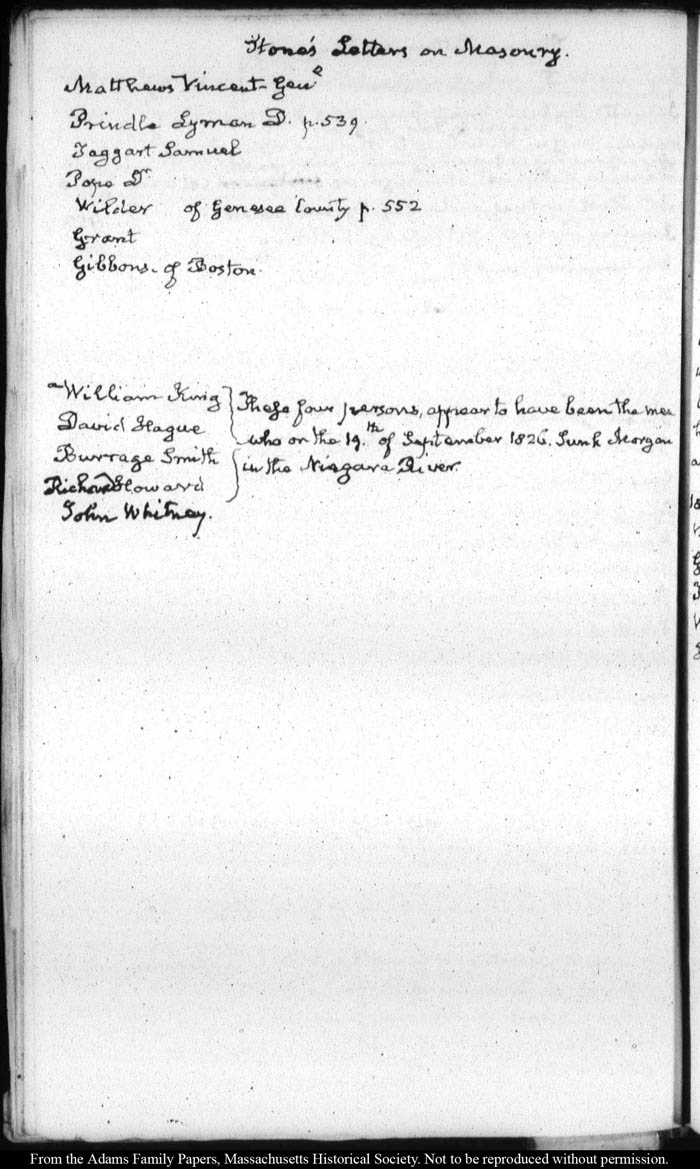 Stone's Letters on Masonry.
Matthews Vincent - Genl
Prindle Lyman D. p. 539.
Taggart Samuel
Pope Dr
Wilder of Genesee County p. 552
Grant
Gibbons - of Boston.
William King
David Hague
Burrage Smith
Richard Howard
John Whitney.
These four persons, appear to have been the men
who on the 19.th of September 1826. Sunk Morgan
in the Niagara River.
From the Adams Family Papers, Massachusetts Historical Society. Not to be reproduced without permission.